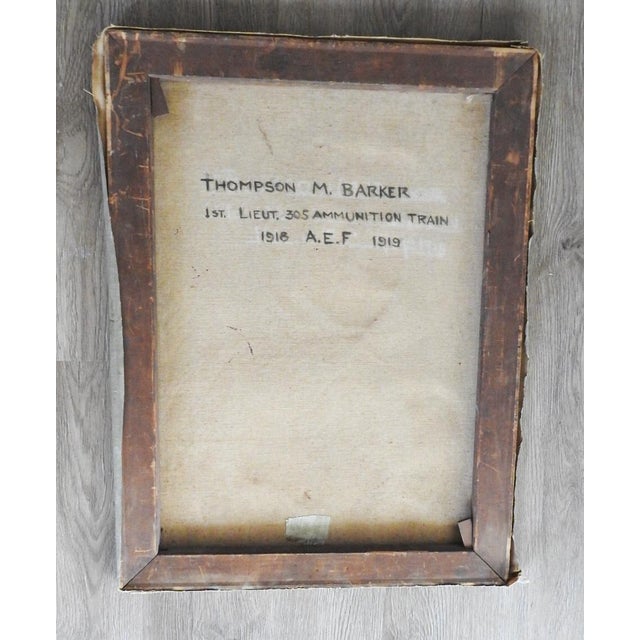 THOMPSON M. BARKER
1ST. LIEUT. 305 AMMUNITION TRAIN
1918 A.E.F 1919